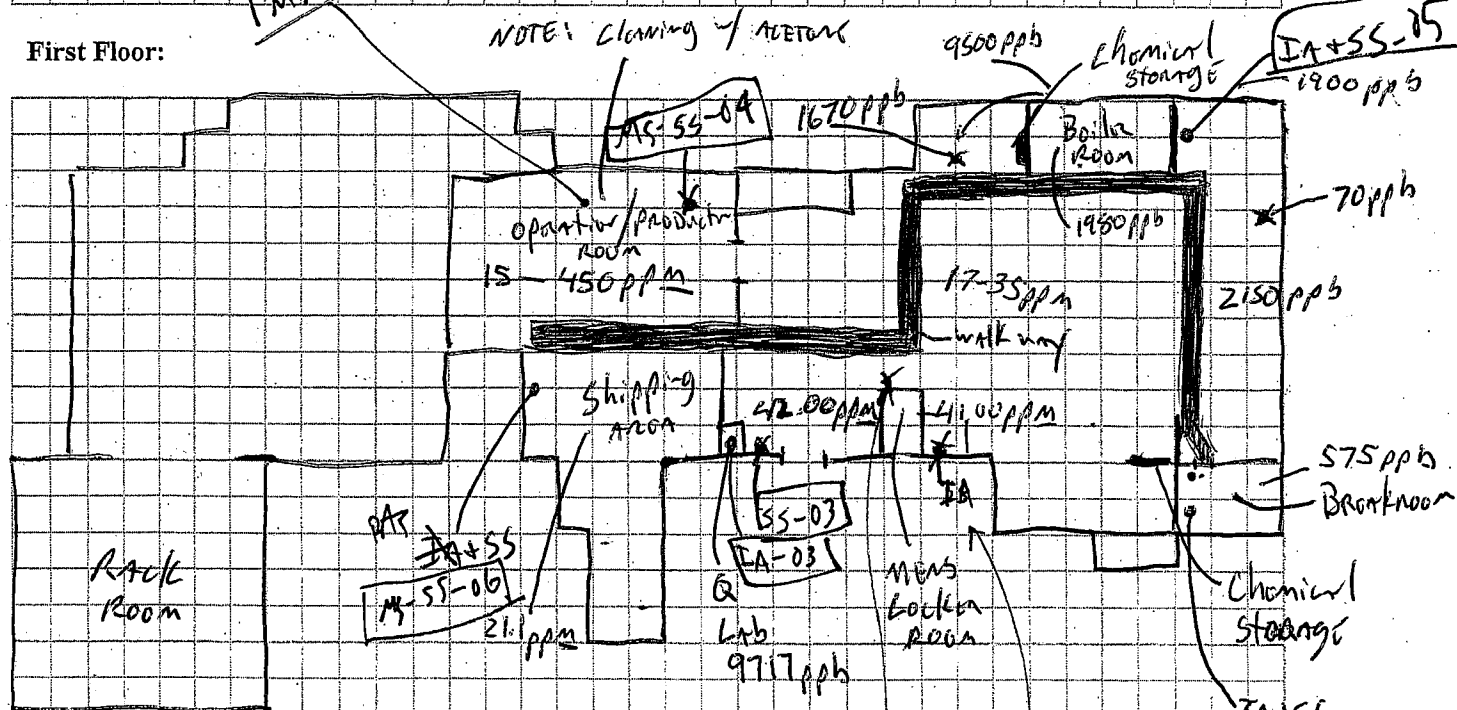 NOTE: Cleaning w/ ACETONE
First Floor:
9500 ppb
Chemical
STORAGE
IA + SS-05
1900 ppb
MS-SS-04
1670 ppb
Boiler
ROOM
70 ppb
OPERATION/PRODUCTN
ROOM
1980 ppb
15 - 450 ppm
17-35 ppm
2150 ppb
WALKWAY
Shipping
AREA
42.00 ppm
41.00 ppm
575 ppb
BREAKROOM
IA
SS-03
IA-03
IA + SS
MS-SS-06
21.1 ppm
RACK
ROOM
Q
LAb
9717 ppb
MENS
LOCKER
ROOM
Chemical
STORAGE